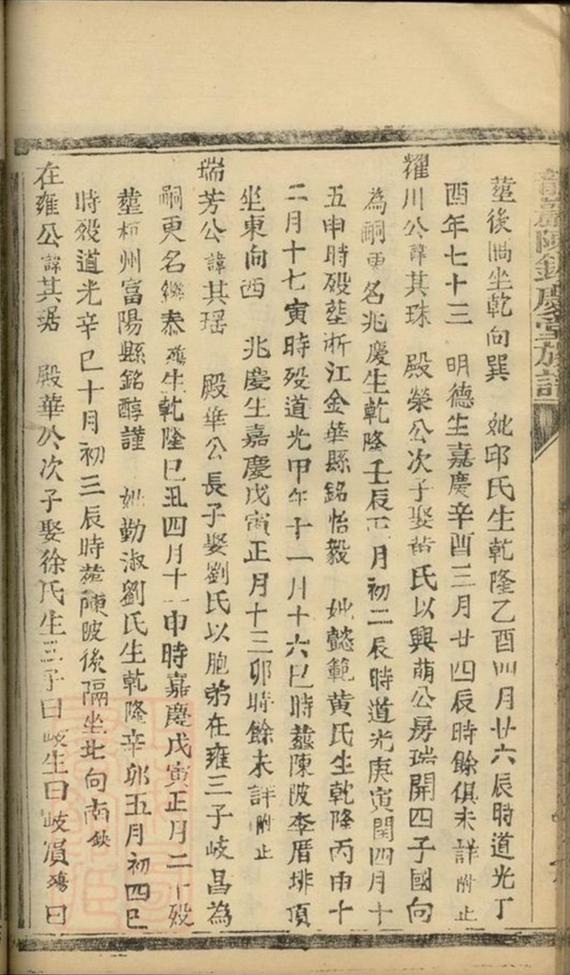 塟後隔坐乾向巽　妣邱氏生乾隆乙酉四月廿六辰時道光丁
酉年七十三　明德生嘉慶辛酉三月廿四辰時餘俱未詳附止
耀川公諱其珠　殿榮公次子娶黃氏以興萌公房瑞開四子國向
為嗣更名兆慶生乾隆壬辰正月初二辰時道光庚寅閏四月十
五申時殁塟浙江金華縣銘怡毅　妣懿範黃氏生乾隆丙申十
二月十七寅時殁道光甲午十一月十六巳時塟陳陂李厝排頂
坐東向西　兆慶生嘉慶戊寅正月十二卯時餘未詳附止
瑞芳公諱其瑶　殿華公長子娶劉氏以胞弟在雍三子岐昌為
嗣更名繼泰殤生乾隆巳丑四月十一申時嘉慶戊寅正月二十殁
塟杭州富陽縣銘醇謹　妣勤淑劉氏生乾隆辛卯五月初四巳
時殁道光辛巳十月初三辰時塟陳陂後隔坐北向南缺
在雍公諱其琚　殿華公次子娶徐氏生三子曰岐生曰岐賓殤曰
慶堂族譜